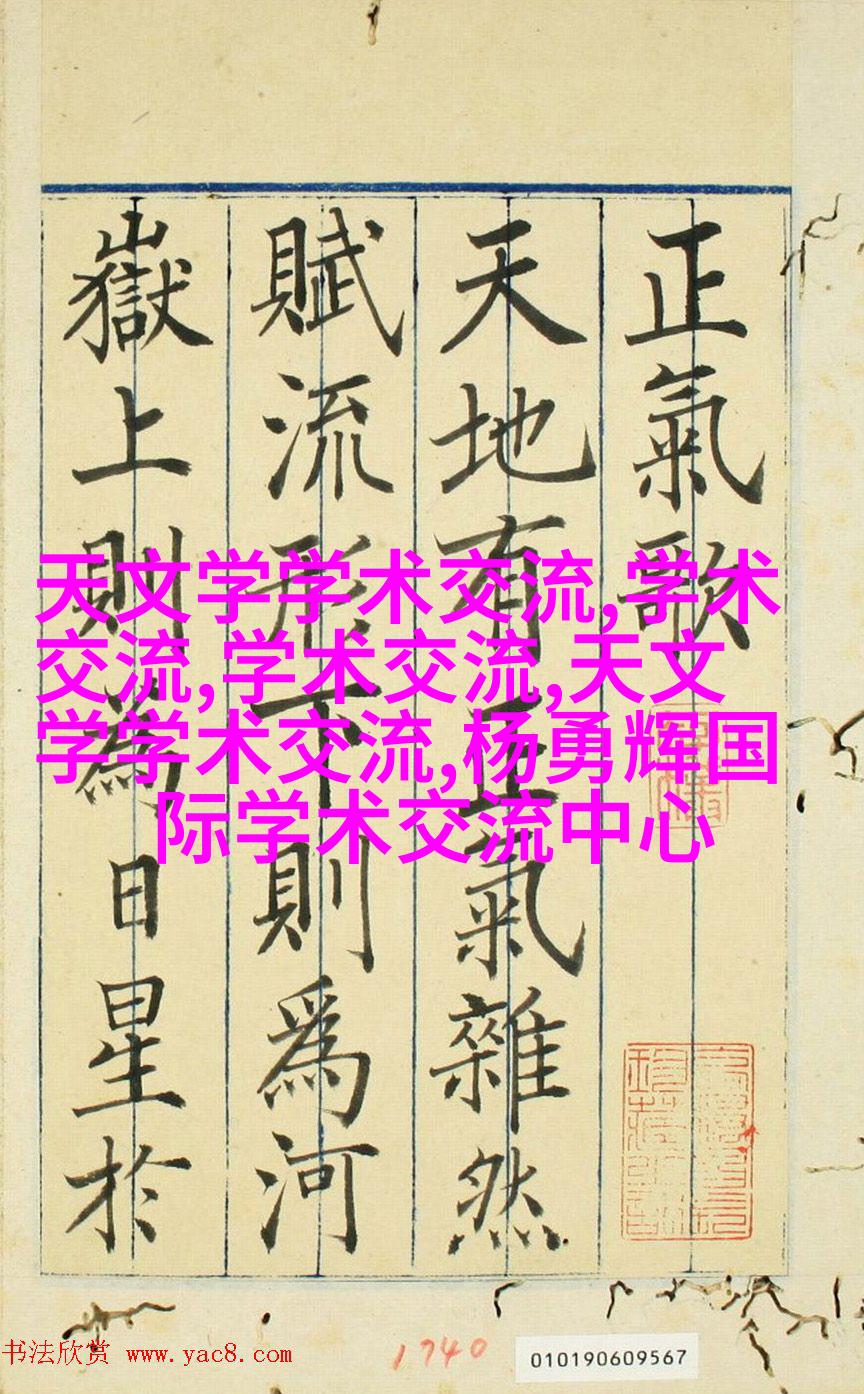 正氣歌
天地有正氣雜然
賦流形下則爲河
嶽上則爲日星於
天文学学术交流,学术
交流,学术交流,天文
学学术交流,杨勇辉国
际学术交流中心
书法欣赏 www.yac8.com
1740
010190609567